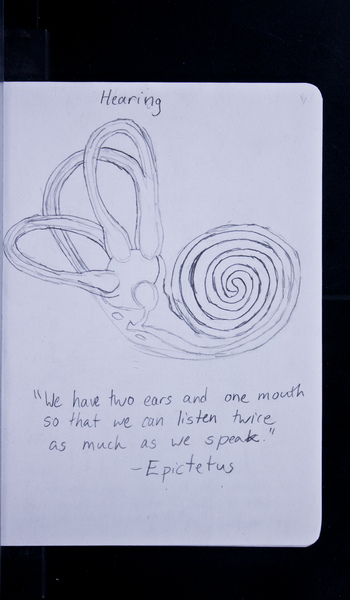 Hearing
"We have two ears and one mouth
so that we can listen twice
as much as we speak."
-Epictetus